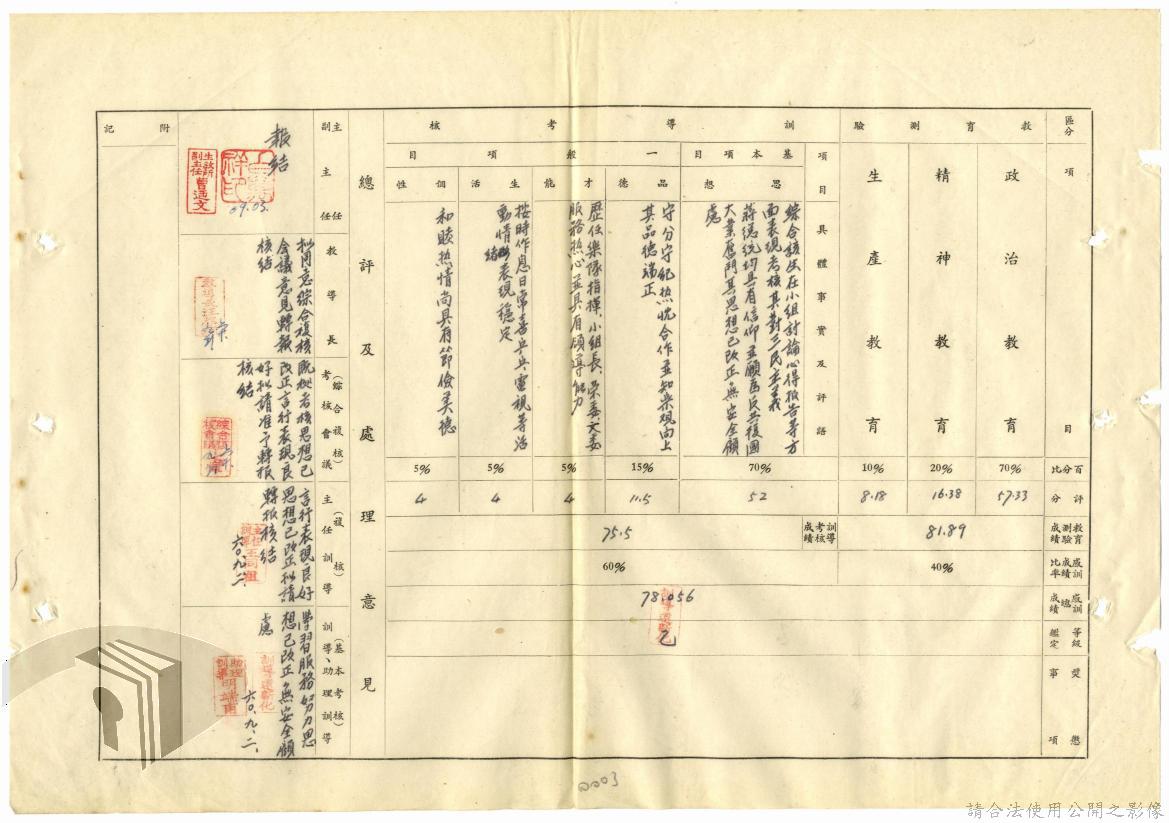 區分
項目
教育測驗
政治教育
精神教育
生產教育
訓導考核
項目
具體事實及評語
基本項目
思想
綜合該生在小組討論心得報告等方
面表現考核其對三民主義
蔣總統均具有信仰並願為反共復國
大業奮鬥其思想已改正無安全顧
慮
一般項目
品德
守分守紀热忱合作並知樂观向上
其品德端正
才能
歷任樂隊指揮、小組長、榮委、文委
服務热心並具有領導能力
生活
按時作息日常喜乒乓電視等活
動情緒表現穩定
個性
和睦热情尚具有節儉美德
百分比
70%
20%
10%
70%
15%
5%
5%
5%
評分
57.33
16.38
8.18
52
11.5
4
4
4
教育測驗成績
81.89
訓導考核成績
75.5
感訓成績比率
40%
60%
感訓總成績
78.056
等級鑑定
乙
獎懲事項
總評及處理意見
(基本考核)
訓導、助理訓導
學習服務努力思
想已改正無安全顧
慮
六〇、九、二、
(複核)
主任訓導
言行表現良好
思想已改正拟請
轉报核結
六〇、九、二、
(綜合複核)
考核會議
既經考核思想已
改正言行表現良
好拟請准予轉报
核結
教導長
拟同意綜合複核
会議意見轉報
核結
主任
副主任
報結
生教所
副主任
09.03.
附記
0003
請合法使用公開之影像